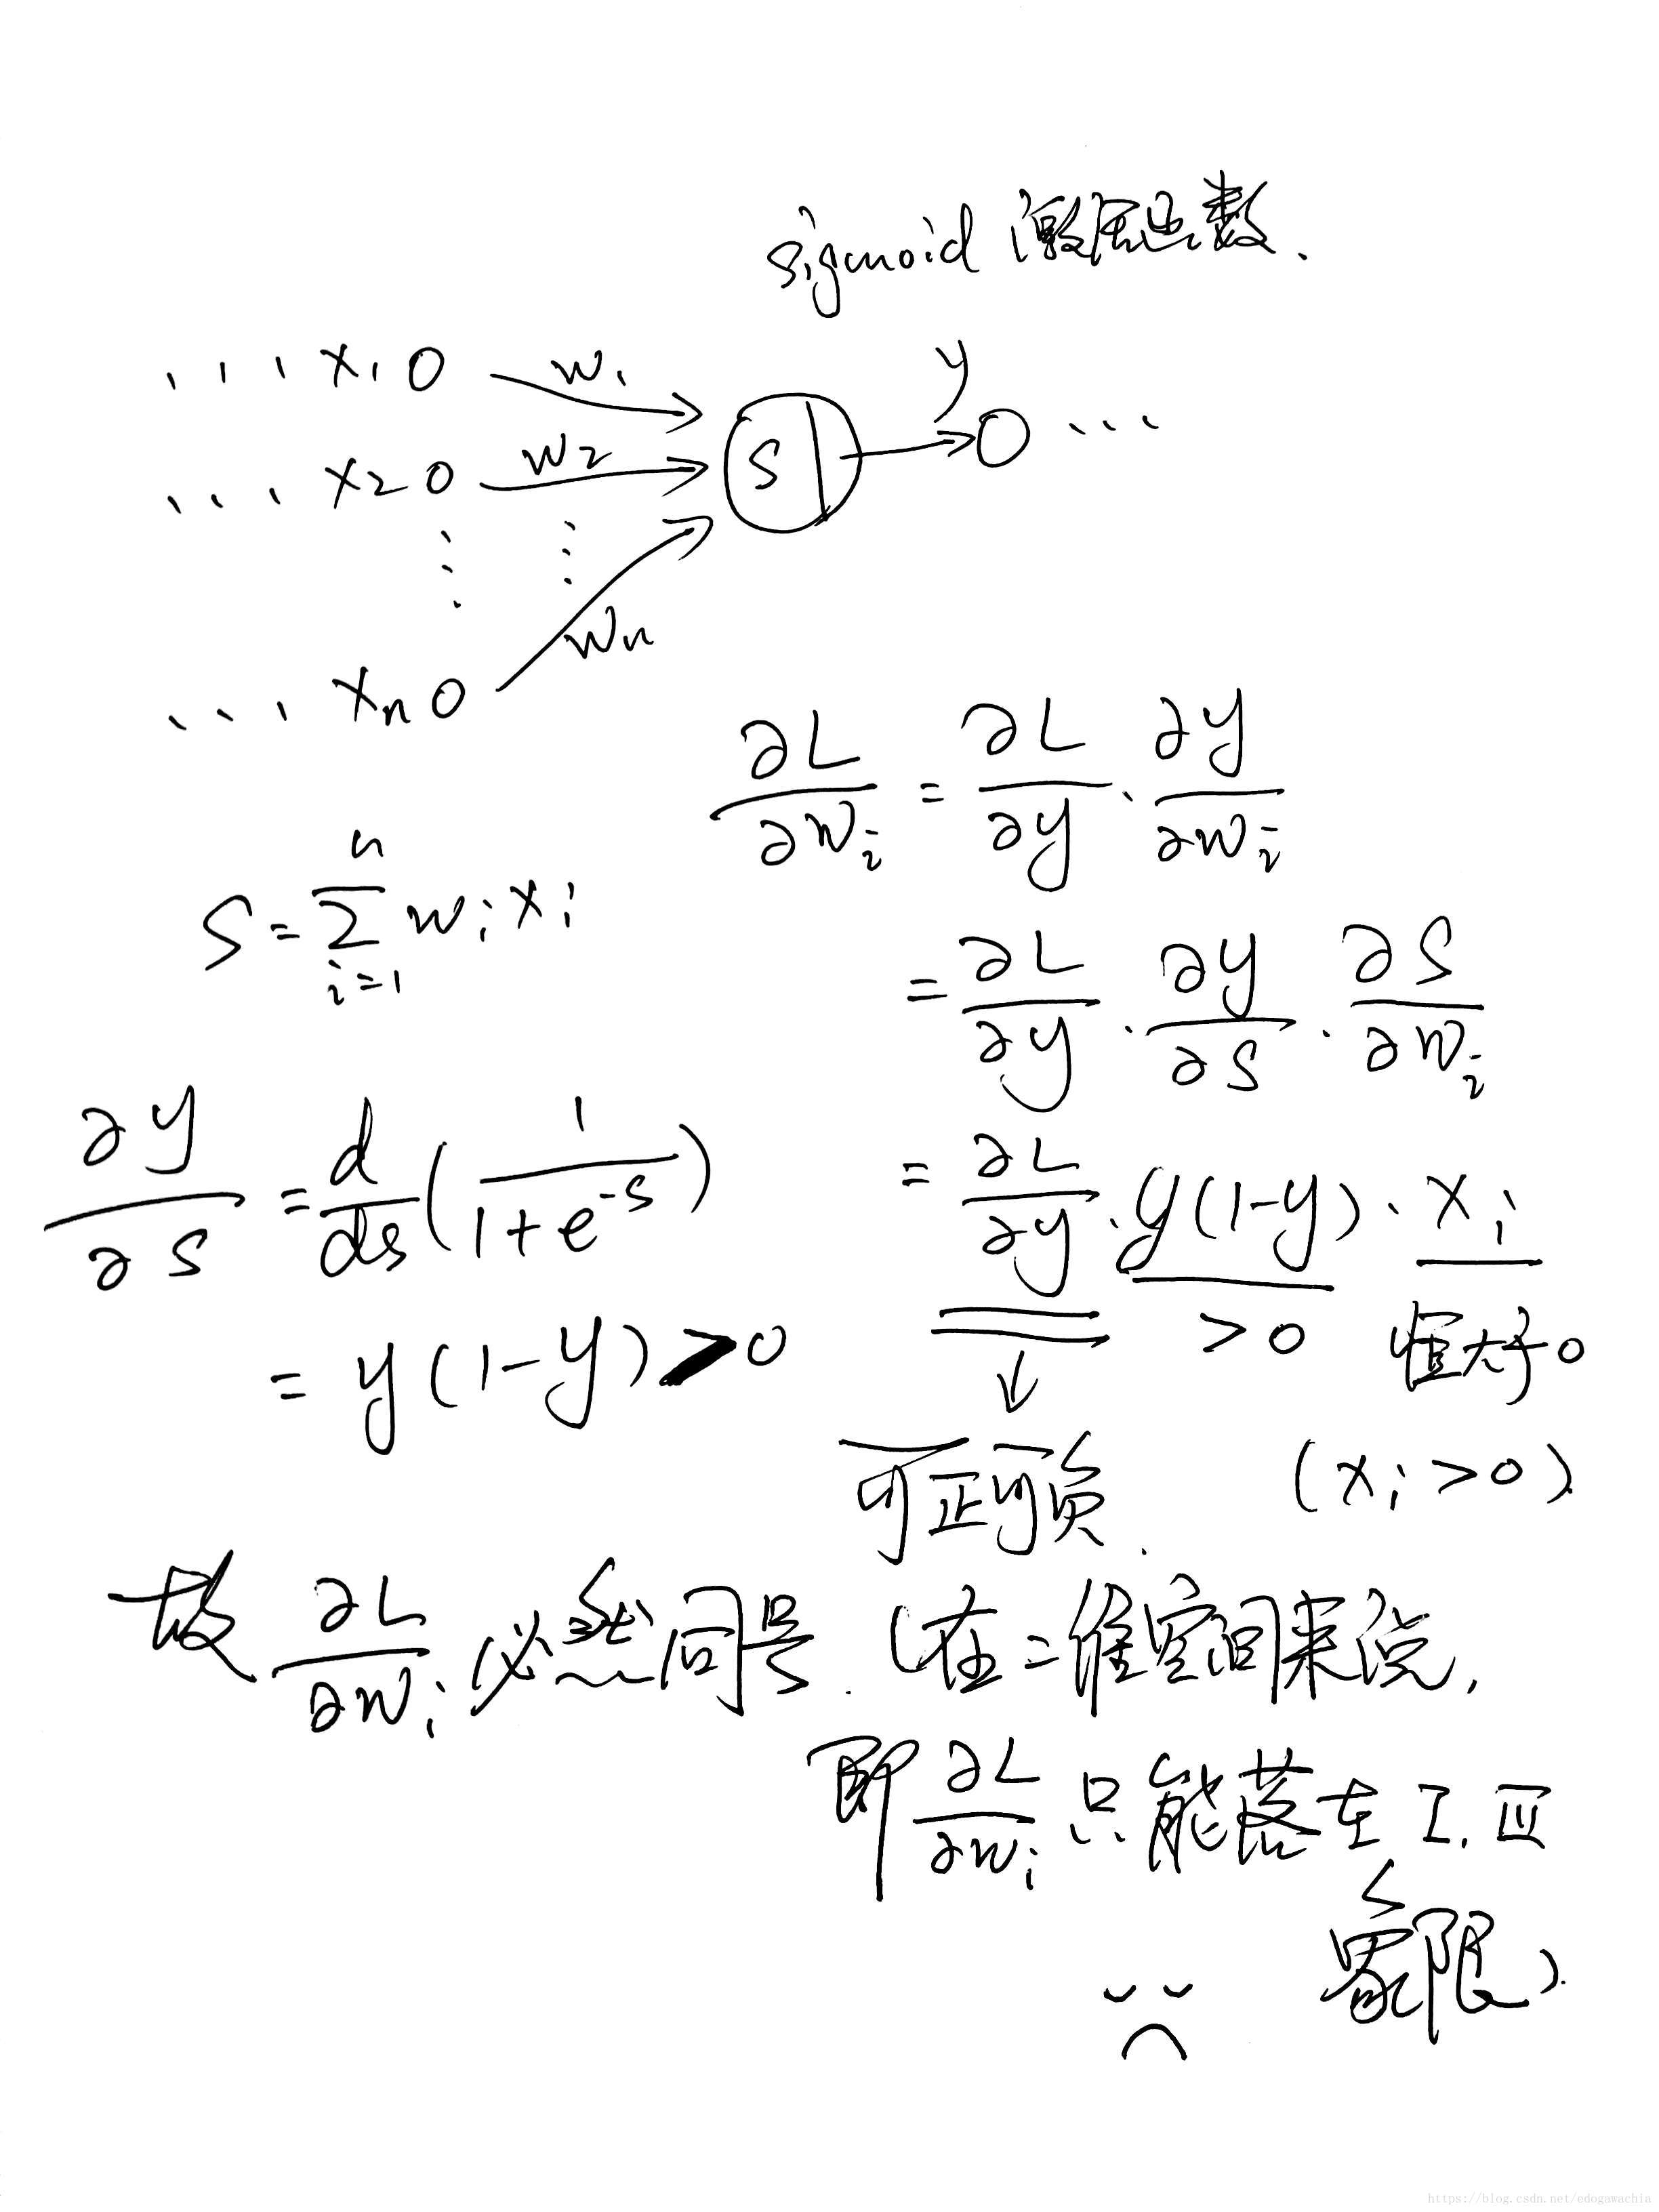 sigmoid 激活函数.
... x₁ O w₁
y
... x₂ O w₂ S O ...
⋮ ⋮
... xₙ O wₙ
∂L/∂wᵢ = ∂L/∂y · ∂y/∂wᵢ
S = ∑ᵢ₌₁ⁿ wᵢxᵢ
= ∂L/∂y · ∂y/∂S · ∂S/∂wᵢ
∂y/∂S = d/ds (1/(1+e^-s))
= ∂L/∂y · y(1-y) · xᵢ
= y(1-y) > 0
>0 恒大于0
可正可负. (xᵢ>0).
故 ∂L/∂wᵢ 必然同号. (在二维空间来说,
即 ∂L/∂wᵢ 只能落在 I, III
象限).
https://blog.csdn.net/edogawachia